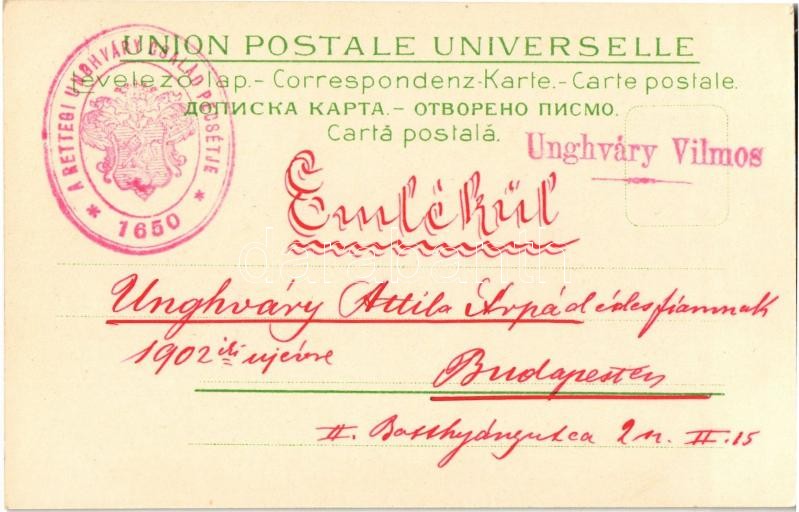 UNION POSTALE UNIVERSELLE
Levelező-Lap.- Correspondenz-Karte.- Carte postale.
ДОПИСКА КАРТА.- ОТВОРЕНО ПИСМО.
Cartă postală.
A RETTEGI UNGHVÁRY CSALÁD PECSÉTJE
* 1650 *
Unghváry Vilmos
Emlékül
Unghváry Attila Árpád édes fiamnak
1902 iki ujévre
Budapesten
II. 2 II. 15
darabanth